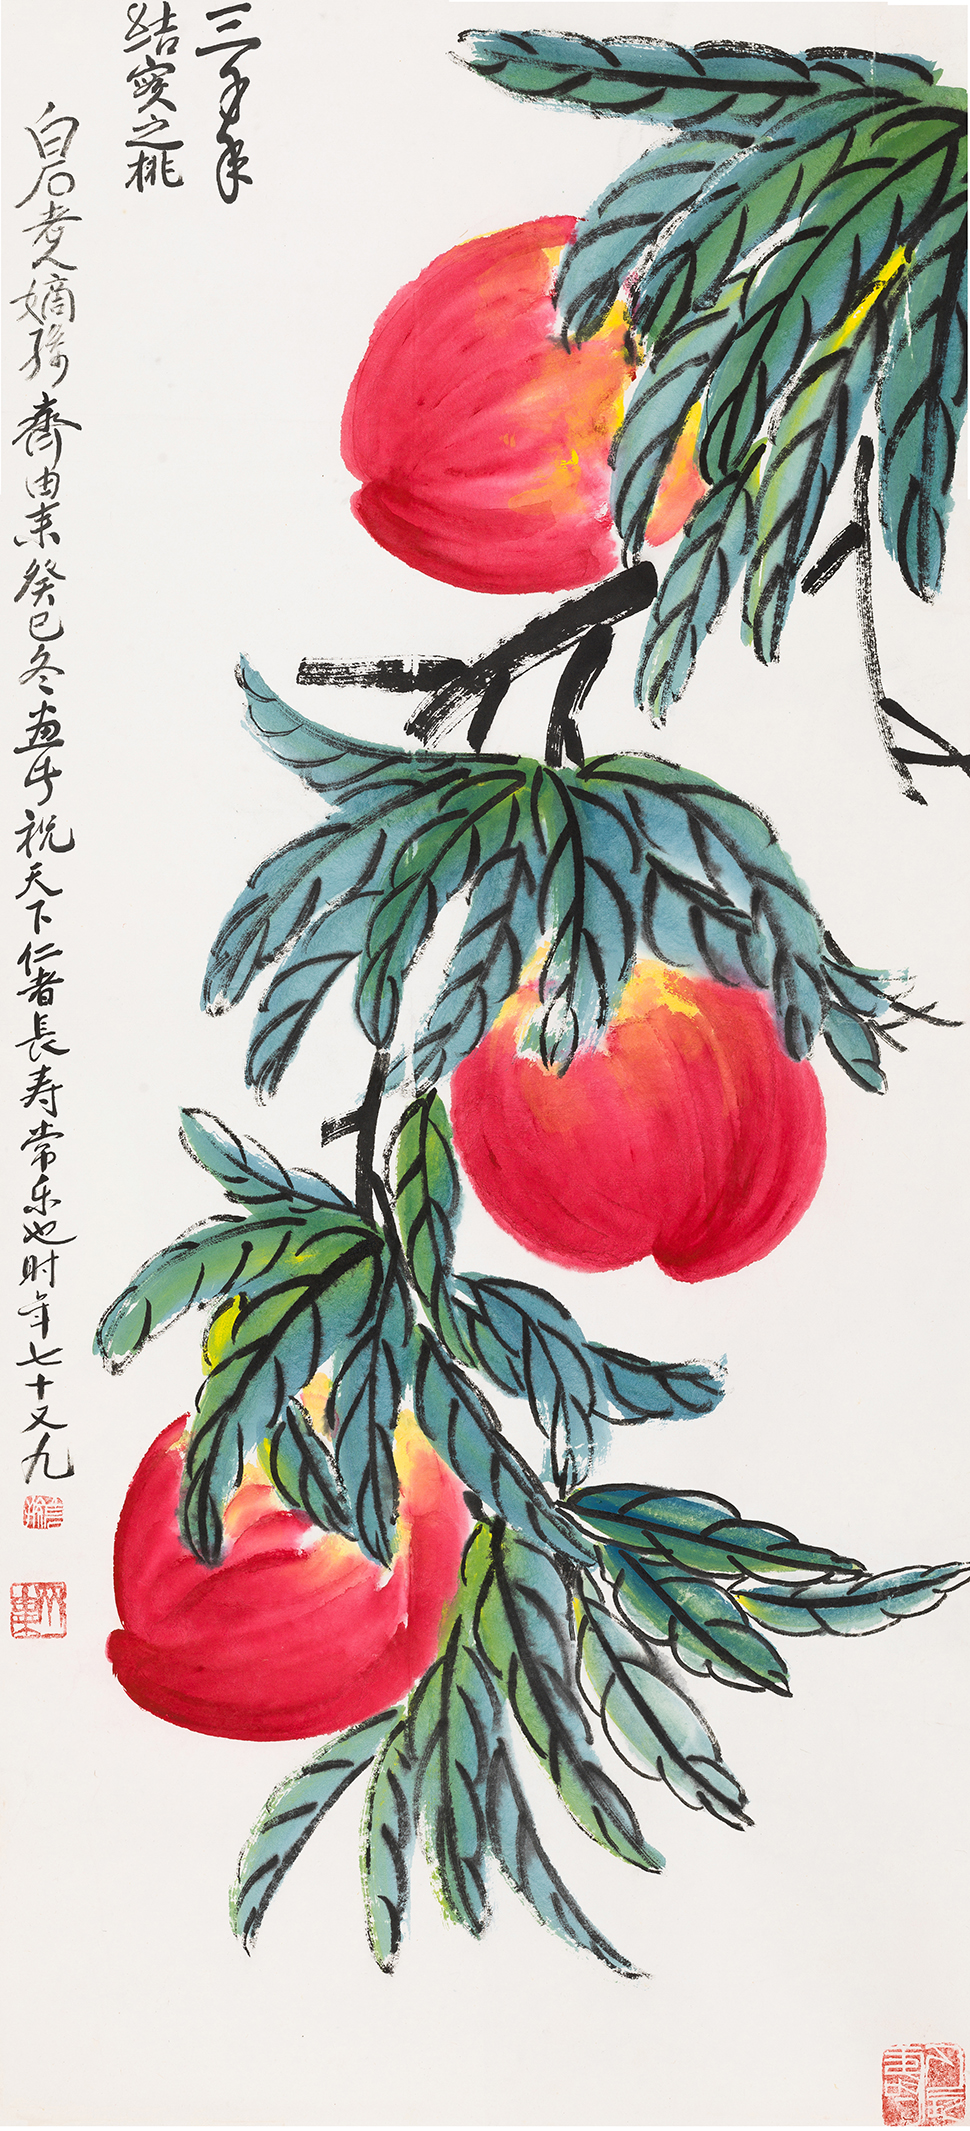 三千年
结实之桃
白石老人嫡孙齐由来癸巳冬画于祝天下仁者長寿常乐也时年七十又九